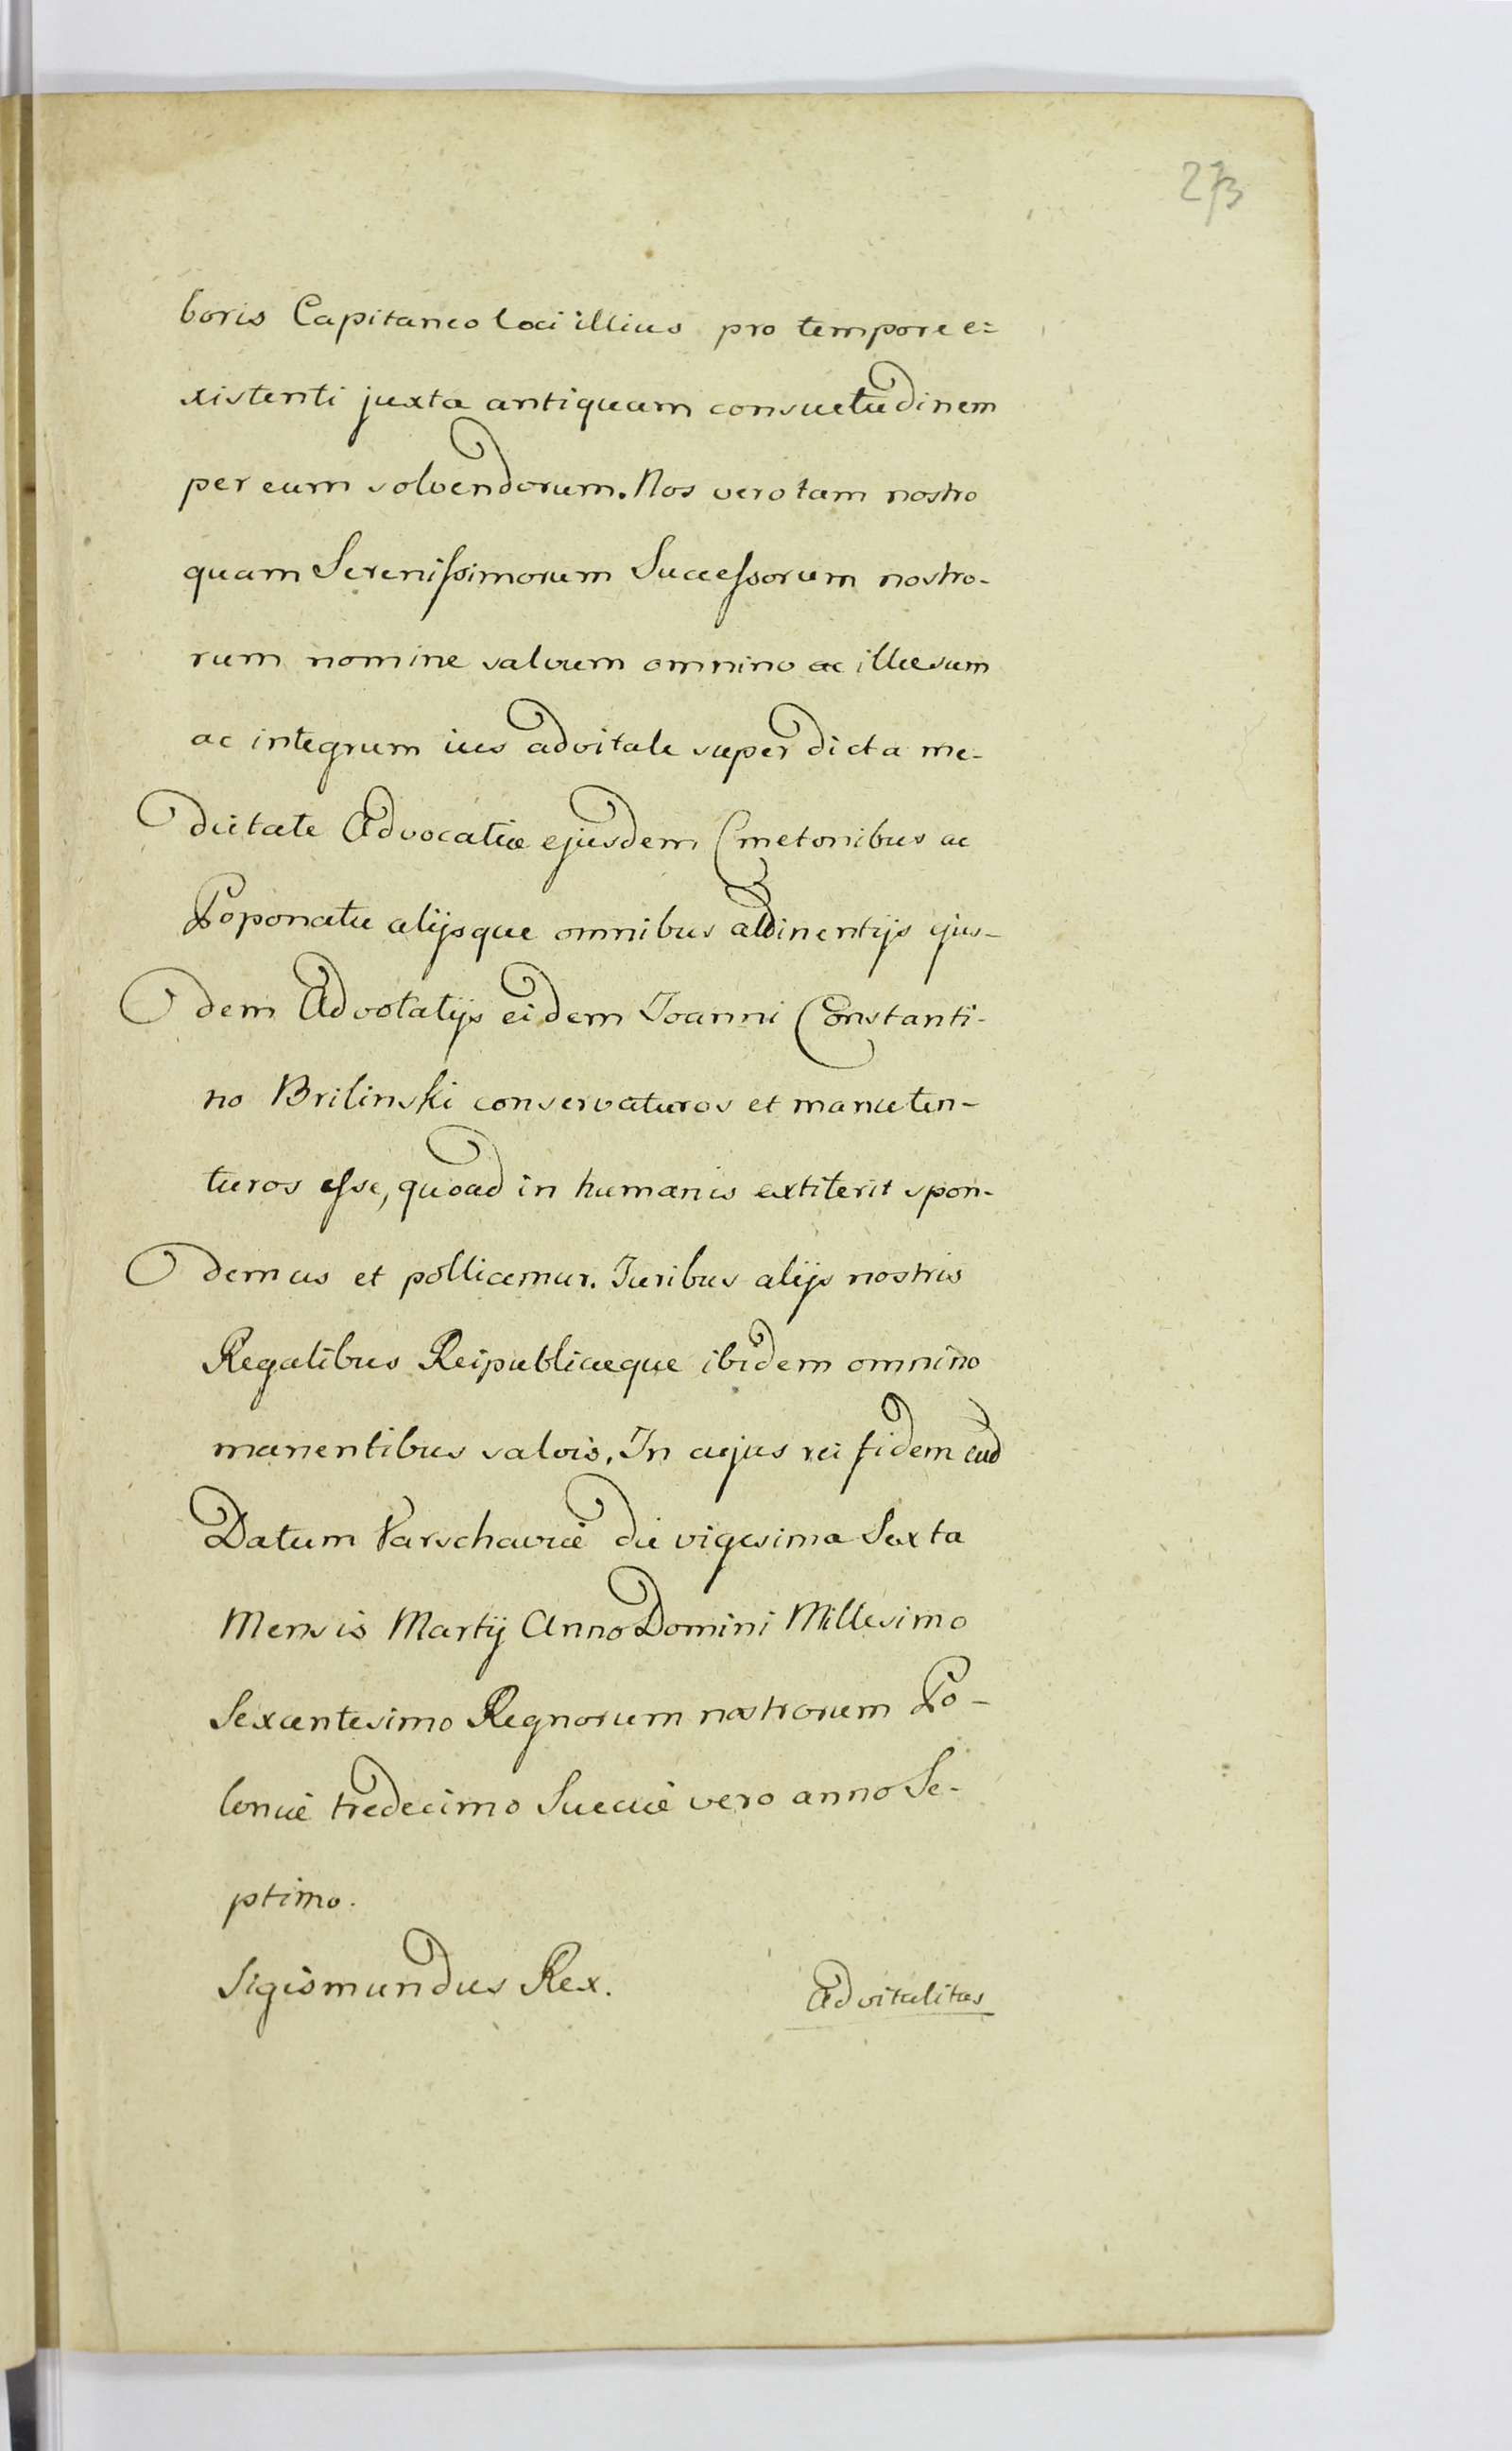 273
boris Capitaneo loci illius pro tempore e=
xistenti juxta antiquam consuetudinem
per eum solvendorum. Nos vero tam nostro
quam Serenissimorum Successorum nostro-
rum nomine salvum omnino ac illæsum
ac integrum ius advitale super dicta me-
dietate Advocatiæ ejusdem Cmetonibus ac
Poponatu alijsque omnibus attinentijs ejus-
dem Advotatijs eidem Joanni Constanti-
no Brilinski conservaturos et manuten-
turos esse, quoad in humanis extiterit spon-
demus et pollicemur. Juribus alijs nostris
Regalibus Reipublicæque ibidem omnino
manentibus salvis. In cujus rei fidem
Datum Varschaviæ die vigesima Sexta
Mensis Martij Anno Domini Millesimo
Sexcentesimo Regnorum nostrorum Po-
loniæ tredecimo Sueciæ vero anno Se-
ptimo.
Sigismundus Rex.
Advitalitas